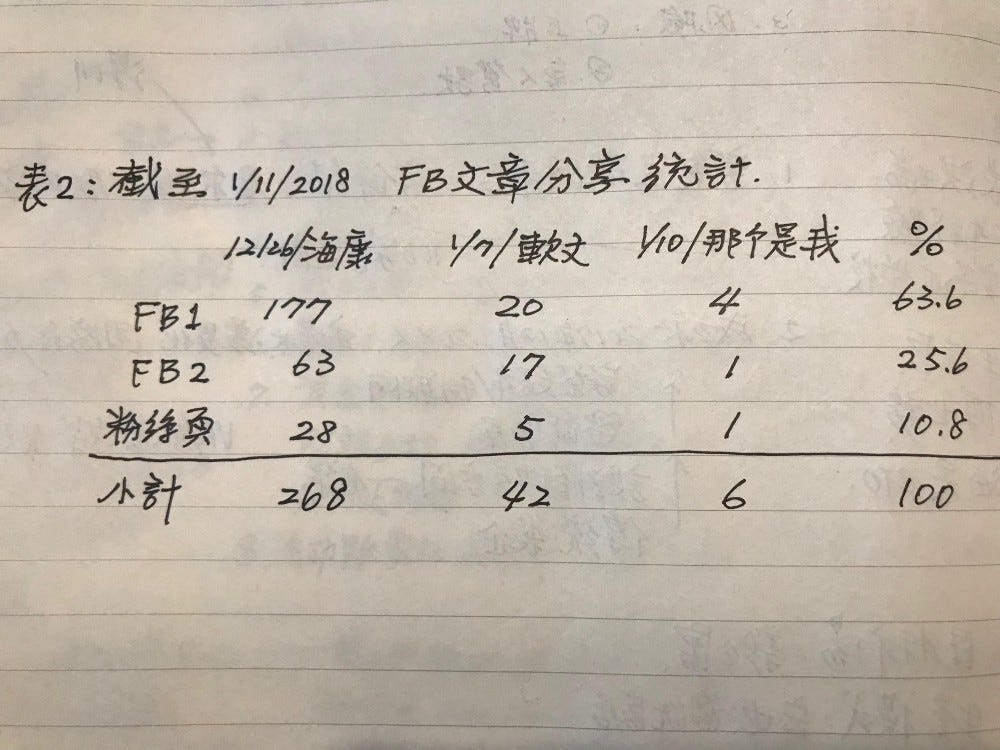 表2：截至 1/11/2018 FB文章分享統計.
12/26/海康 1/7/軟文 1/10/那个是我 %
FB1 177 20 4 63.6
FB2 63 17 1 25.6
粉絲頁 28 5 1 10.8
小計 268 42 6 100